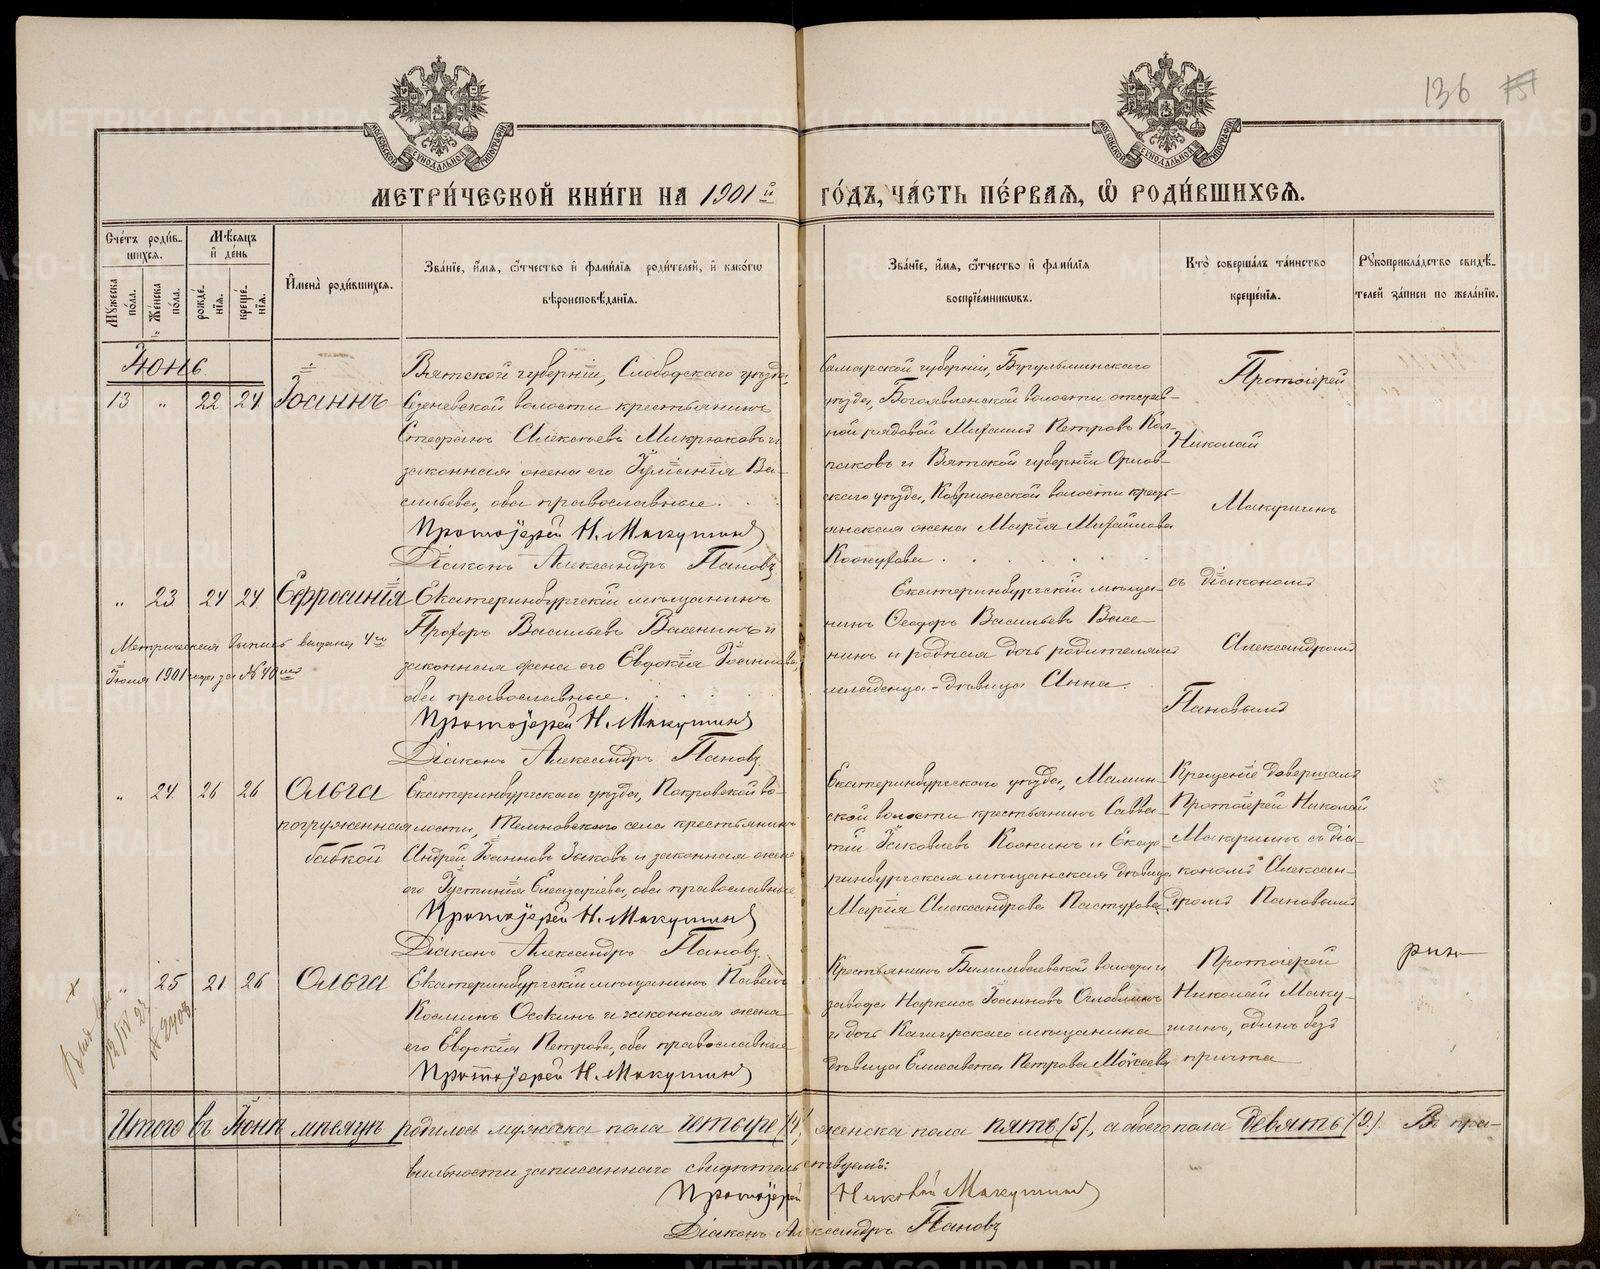 136
МОСКОВСКОЙ СѴНОДАЛЬНОЙ ТИПОГРАФІИ
МОСКОВСКОЙ СѴНОДАЛЬНОЙ ТИПОГРАФІИ
МЕТРИ́ЧЕСКОЙ КНИ́ГИ НА 1901й ГО́ДЪ, ЧА́СТЬ ПЕ́РВАЯ, Ѽ РОДИ́ВШИХСѦ.
Сче́тъ роди́в-
шихся.
Мѣ́сяцъ
и де́нь
Мꙋ́жеска
по́ла.
Же́нска
по́ла.
рожде́-
нїя.
креще́-
нїя.
Имена̀ роди́вшихся.
Зва́нїе, и́мя, ѻ́тчество и фами́лїя роди́телей, и како́гѡ
вѣроисповѣ́данїя.
Зва́нїе, и́мя, ѻ́тчество и фами́лїя
воспрїе́мниковъ.
Кто̀ соверша́лъ та́инство
креще́нїя.
Рꙋкоприкла́дство свидѣ́-
телей за́писи по жела́нїю.
Іюнь.
13 „ 22 24 Іоаннъ
Вятской губерніи, Слободскаго уѣзда,
Сезеневской волости крестьянинъ
Стефанъ Алексѣевъ Микрюковъ и
законная жена его Іуліанія Ва-
сильева, оба православные.
Протоіерей Н. Макушинъ
Діаконъ Александръ Пановъ
Самарской губерніи, Бугульминскаго
уѣзда, Богоявленской волости отстав-
ной рядовой Михаилъ Петровъ Кол-
паковъ и Вятской губерніи Орлов-
скаго уѣзда, волости кресть-
янская жена Марія Михайлова
Протоіерей
Николай
Макушинъ
съ діакономъ
Александромъ
Пановымъ
„ 23 24 24 Евфросинія
Метрическая выпись выдана 4го
Іюля 1901 года за № 40мъ
Екатеринбургскій мѣщанинъ
Прохоръ Васильевъ Васенинъ и
законная жена его Евдокія Іоаннова,
оба православные.
Протоіерей Н. Макушинъ
Діаконъ Александръ Пановъ.
Екатеринбургскій мѣща-
нинъ Ѳеодоръ Васильевъ Васе-
нинъ и родная дочь родителямъ
младенца - дѣвица Анна.
„ 24 26 26 Ольга
погруженная
бабкой
Екатеринбургскаго уѣзда, Покровской во-
лости, села крестьянинъ
Андрей Іоанновъ Зыковъ и законная жена
его Іустинія Елеазаріева, оба православные
Протоіерей Н. Макушинъ
Діаконъ Александръ Пановъ.
Екатеринбургскаго уѣзда, Мамин-
ской волости крестьянинъ Савва-
тій Іаковлевъ и Екате-
ринбургская мѣщанская дѣвица
Марія Александрова Пастухова.
Крещеніе довершалъ
Протоіерей Николай
Макушинъ съ діа-
кономъ Алексан-
дромъ Пановымъ
„ 25 21 26 Ольга
Екатеринбургскій мѣщанинъ Павелъ
Косминъ Осокинъ и законная жена
его Евдокія Петрова, оба православные
Протоіерей Н. Макушинъ
Крестьянинъ Билимбаевской волости и
завода Наркисъ Іоанновъ Оглоблинъ
и дочь мѣщанина
дѣвица Елисавета Петрова Моисеева
Протоіерей
Николай Маку-
шинъ, одинъ безъ
причта
Итого въ Іюнѣ мѣсяцѣ родилось мужеска пола четыре (4), женска пола пять (5), а обоего пола девять (9). Въ пра-
вильности записаннаго свидѣтельствуемъ:
Протоіерей Николай Макушинъ
Діаконъ Александръ Пановъ
METRIKI.GASO-URAL.RU